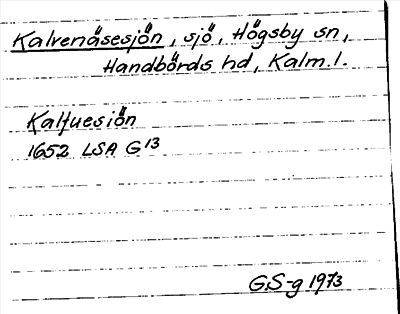 Kalvenäsesjön, sjö, Högsby sn,
Handbörds hd, Kalm.l.
Kalfuesiön
1652 LSA G13
GS-g 1973